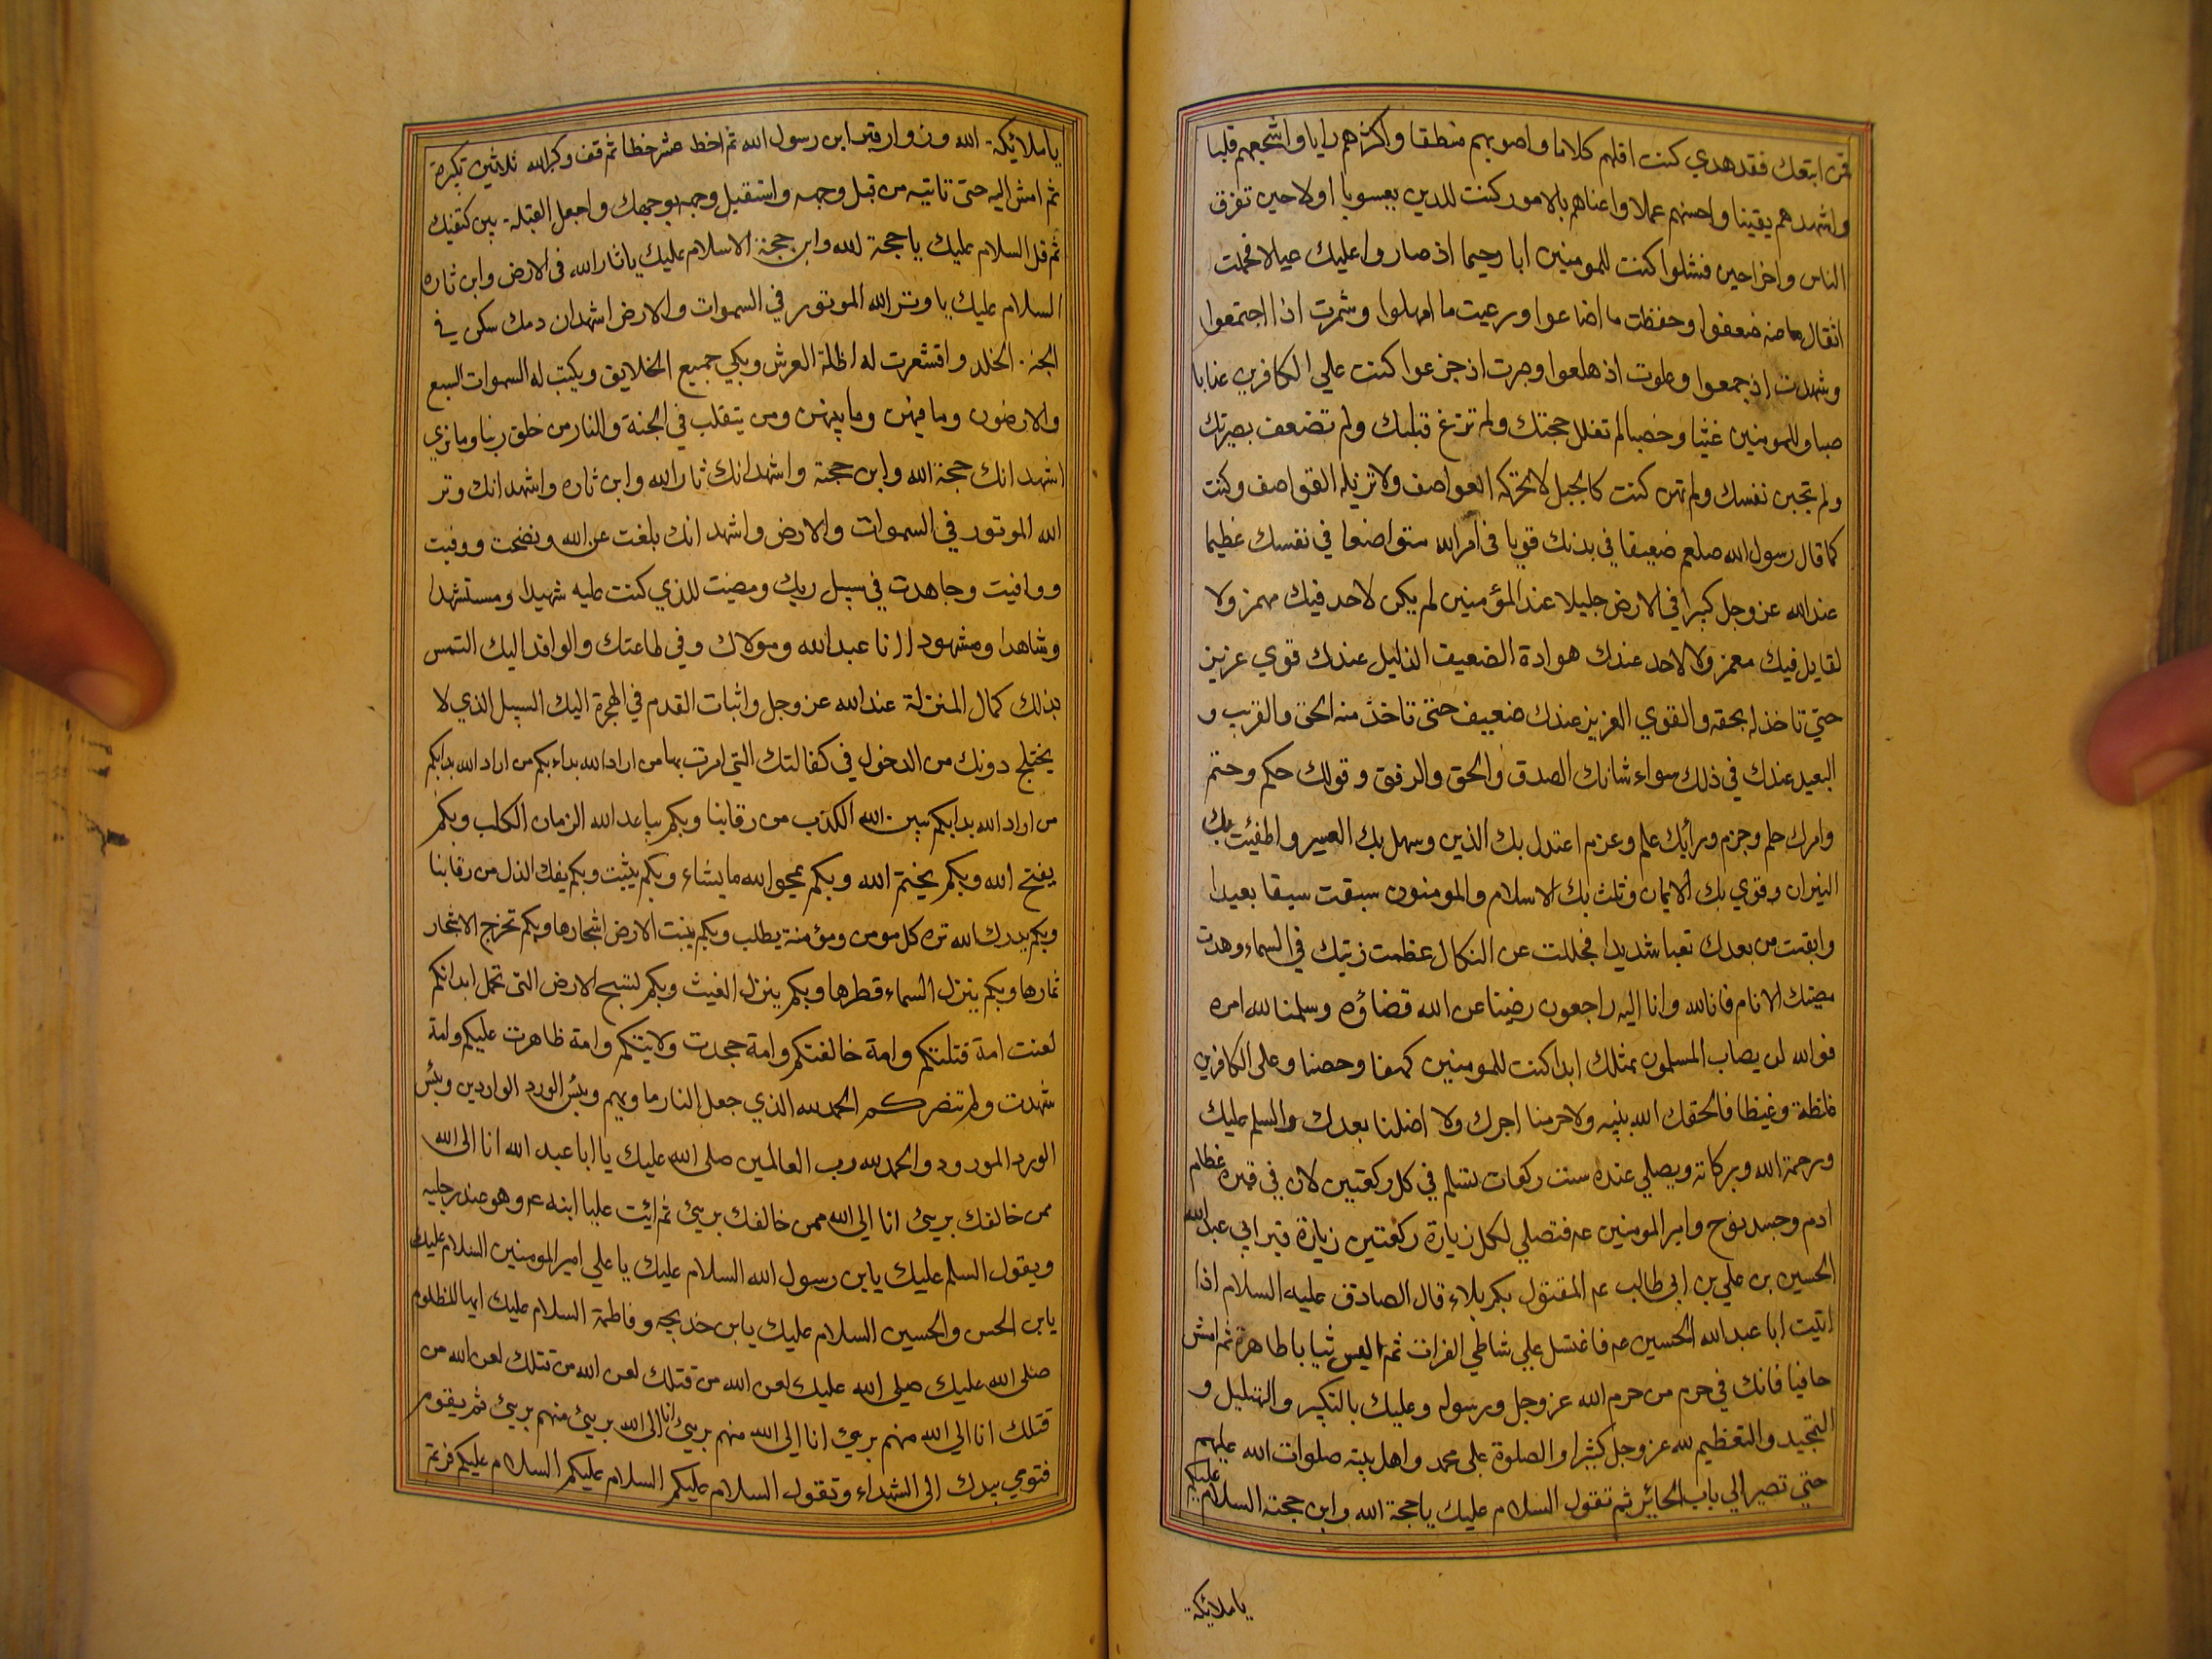 فمن ابتعك فقد هدي كنت اقلهم كلاما واصوبهم منطقا واكثرهم رايا واشجعهم قلبا
واشدهم يقينا واحسنهم عملا واعناهم بالامور كنت للدين يعسوبا اولا حين تفرق
الناس واخرا حين فشلوا كنت للمومنين ابا رحيما اذ صاروا عليك عيالا فحملت
اثقال ما عنه ضعفوا وحفظت ما اضاعوا ورعيت ما اهملوا وشمرت اذا اجتمعوا
وشهدت اذ جمعوا وعلوت اذ هلعوا وصبرت اذ جزعوا كنت علي الكافرين عذابا
صبا وللمومنين غيثا وخصبا لم تفلل حجتك ولم تزغ قلبك ولم تضعف بصيرتك
ولم تجبن نفسك ولم تهن كنت كالجبل لا تحركه العواصف ولا تزيله القواصف وكنت
كما قال رسول الله صلعم ضعيفا في بدنك قويا في امر الله متواضعا في نفسك عظيما
عند الله عز وجل كبيرا في الارض جليلا عند المؤمنين لم يكن لاحد فيك مهمز ولا
لقايل فيك مغمز ولا لاحد عندك هوادة الضعيف الذليل عندك قوي عزيز
حتي تاخذ له بحقه والقوي العزيز عندك ضعيف حتي تاخذ منه الحق والقريب و
البعيد عندك في ذلك سواء شانك الصدق والحق والرفق وقولك حكم وحتم
وامرك حلم وجزم ورأيك علم وعزم اعتدل بك الدين وسهل بك العسير واطفئت بك
النيران وقوي بك الايمان وثلث بك الاسلام والمومنون سبقت سبقا بعيدا
وابقيت من بعدك تعبا شديدا فجللت عن النكال عظمت رزيتك في السماء وهدت
مصيبتك الانام فانا لله وانا اليه راجعون رضينا عن الله قضاؤه وسلمنا لله امره
فوالله لن يصاب المسلمون بمثلك ابدا كنت للمومنين كهفا وحصنا وعلى الكافرين
غلظة وغيظا فالحقك الله بنبيه ولا حرمنا اجرك ولا اضلنا بعدك والسلم عليك
ورحمة الله وبركاته ويصلي عنده ست ركعات تسلم في كل ركعتين لان في قبره عظام
ادم وجسد نوح وامير المومنين عم فتصلي لكل زيارة ركعتين زيارة قبر ابي عبد الله
الحسين بن علي بن ابي طالب عم المقتول بكربلاء قال الصادق عليه السلام اذا
اتيت ابا عبد الله الحسين عم فاغتسل علي شاطي الفرات ثم البس ثيابا طاهرة ثم امش
حافيا فانك في حرم من حرم الله عز وجل ورسوله وعليك بالتكبير والتهليل و
التمجيد والتعظيم لله عز وجل كثيرا والصلوة على محمد واهل بيته صلوات الله عليهم
حتي تصير الي باب الحائر ثم تقول السلام عليك يا حجة الله وابن حجته السلام عليكم
يا ملائكة
يا ملائكة الله وزوار قبر ابن رسول الله ثم اخط عشر خطا ثم قف وكبر الله ثلاثين تكبيرة
ثم امش اليه حتى تاتيه من قبل وجهه واستقبل وجهه بوجهك واجعل القبلة بين كتفيك
ثم قل السلام عليك يا حجة الله وابن حجة الاسلام عليك يا ثار الله في الارض وابن ثاره
السلام عليك يا وتر الله الموتور في السموات والارض اشهد ان دمك سكن في
الجنة الخلد واقشعرت له اظلة العرش وبكي جميع الخلايق وبكيت له السموات السبع
والارضون وما فيهن وما بينهن ومن يتقلب في الجنة والنار من خلق ربنا وما نري
اشهد انك حجة الله وابن حجته واشهد انك ثار الله وابن ثاره واشهد انك وتر
الله الموتور في السموات والارض واشهد انك بلغت عن الله ونصحت ووفيت
ووافيت وجاهدت في سبيل ربك ومضيت للذي كنت عليه شهيدا ومستشهدا
وشاهدا ومشهودا انا عبد الله ومولاك وفي طاعتك والوافد اليك التمس
بذلك كمال المنزلة عند الله عز وجل واثبات القدم في الهجرة اليك السبيل الذي لا
يختلج دونك من الدخول في كفالتك التي امرت بها من اراد الله بداء بكم من اراد الله بدا بكم
من اراد الله بدا بكم يبين الله الكذب من رقابنا وبكم يباعد الله الزمان الكلب وبكم
يفتح الله وبكم يختم الله وبكم يمحوا الله ما يشاء وبكم يثبت وبكم يفك الذل من رقابنا
وبكم يدرك الله تره كل مومن ومؤمنة يطلب وبكم ينبت الارض اشجارها وبكم تخرج الاشجار
ثمارها وبكم ينزل السماء قطرها وبكم ينزل الغيث وبكم تسبح الارض التي تحمل ابدانكم
لعنت امة قتلتكم وامة خالفتكم وامة جحدت ولايتكم وامة ظاهرت عليكم وامة
شهدت ولم تنصركم الحمد لله الذي جعل النار ماويهم وبئس الورد الواردين وبئس
الورد المورود والحمد لله رب العالمين صلى الله عليك يا ابا عبد الله انا الى الله
ممن خالفك بريئ انا الى الله ممن خالفك بريئ ثم ائت عليا ابنه عم وهو عند رجليه
ويقول السلم عليك يابن رسول الله السلام عليك يا علي امير المومنين السلام عليك
يابن الحسن والحسين السلام عليك يابن خديجه وفاطمة السلام عليك ايها المظلوم
صلى الله عليك صلى الله عليك لعن الله من قتلك لعن الله من قتلك لعن الله من
قتلك انا الي الله منهم بريئ انا الى الله منهم بريئ انا الى الله بريئ منهم بريئ ثم يقوم
فتومي بيدك الى الشهداء وتقول السلام عليكم السلام عليكم السلام عليكم فزتم